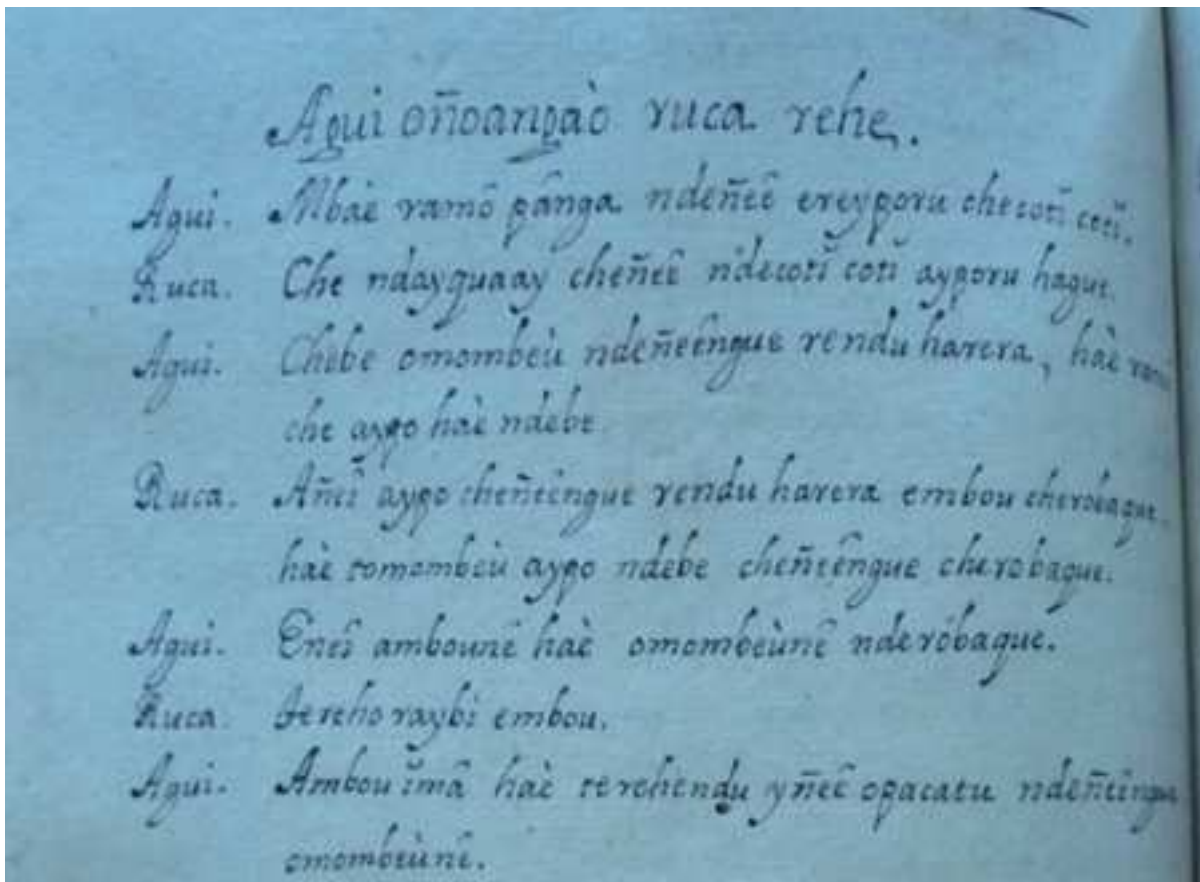 Agui oñoangaò ruca rehe.
Agui. Mbaè ramô pânga ndeñeê ereyporu checotĭ cotĭ.
Ruca. Che ndayquaay cheñeê ndecotĭ cotĭ ayporu hague.
Agui. Chebe omombeù ndeñeêngue rendu harera, haè ramo
che aypo haè ndebe.
Ruca. Añeî aypo cheñeêngue rendu harera embou cherobaque.
haè tomombeù aypo ndebe cheñeêngue cherobaque.
Agui. Eneî ambounê haè omombeùnê nderobaque.
Ruca. Tereho raybi embou.
Agui. Ambou ĭmâ haè terehendu yñeê opacatu ndeñeêngue
omombeùnê.